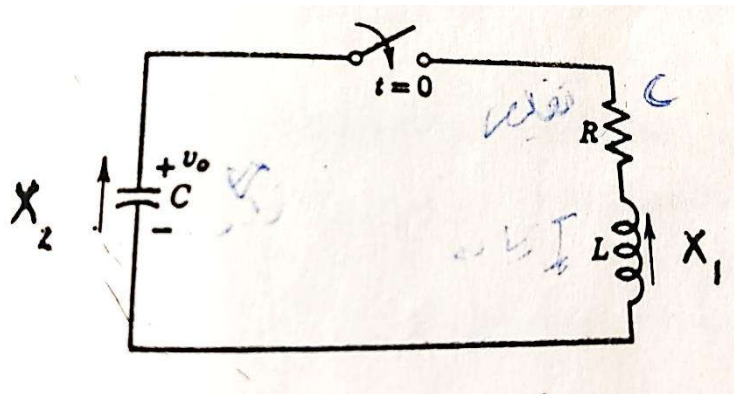 t = 0
R
+ v₀
C
−
X₂
L
X₁